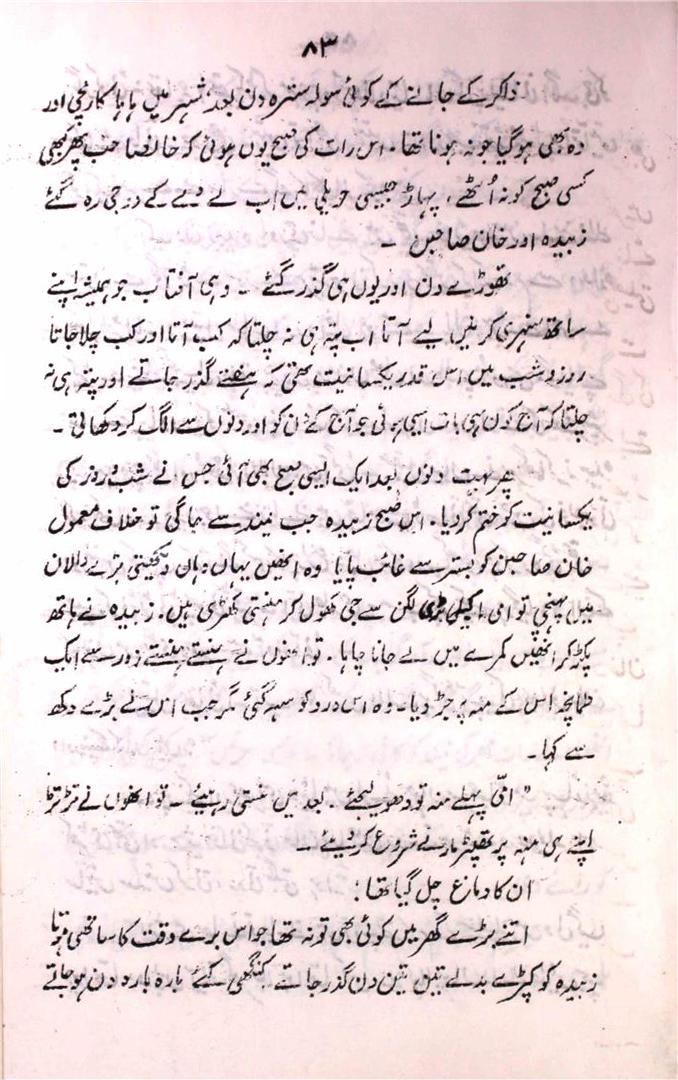 ۸۳
ذاکر کے جانے کے کوئی سولہ سترہ دن بعد شہر میں ہاہا کار مچی اور
وہ بھی ہوگیا جو نہ ہونا تھا۔ اس رات کی صبح یوں ہوئی کہ خانصاحب پھر کبھی
کسی صبح کو نہ اُٹھے، پہاڑ جیسی حویلی میں اب لے دے کے دو جی رہ گئے
زبیدہ اور خان صاحبن ۔
تھوڑے دن اور یوں ہی گذر گئے ۔ وہی آفتاب جو ہمیشہ اپنے
ساتھ سنہری کرنیں لیے آتا اب پتہ ہی نہ چلتا کہ کب آتا اور کب چلا جاتا
روز و شب میں اس قدر یکسانیت تھی کہ ہفتے گذر جاتے اور پتہ ہی نہ
چلتا کہ آج کون سی بات ایسی ہوئی جو آج کے دن کو اور دنوں سے الگ کر دکھاتی ۔
پھر بہت دنوں بعد ایک ایسی صبح بھی آئی جس نے شب و روز کی
یکسانیت کو ختم کردیا۔ اس صبح زبیدہ جب نیند سے جاگی تو خلاف معمول
خان صاحبن کو بستر سے غائب پایا وہ انھیں یہاں وہاں دیکھتی بڑے دالان
میں پہنچی تو امی اکیلی بڑی لگن سے جی کھول کر ہنستی کھڑی ہیں۔ زبیدہ نے ہاتھ
پکڑ کر انھیں کمرے میں لے جانا چاہا۔ تو انھوں نے ہنستے ہنستے زور سے ایک
طمانچہ اس کے منہ پر جڑ دیا۔ وہ اس درد کو سہہ گئی مگر جب اس نے بڑے دکھ
سے کہا۔
" امّی پہلے منہ تو دھو لیجئے۔ بعد میں ہنستی رہیئے ۔ تو انھوں نے تڑ تڑ
اپنے ہی منہ پر تھپڑ مارنے شروع کر دیئے ۔
ان کا دماغ چل گیا تھا :
اتنے بڑے گھر میں کوئی بھی تو نہ تھا جو اس برے وقت کا ساتھی ہوتا
زبیدہ کو کپڑے بدلے تین تین دن گذر جاتے کنگھی کئے بارہ بارہ دن ہو جاتے